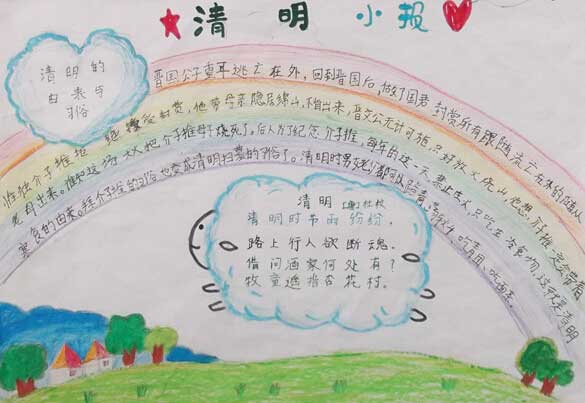 清明小报
清明的
由来与
习俗
晋国公子重耳逃亡在外，回到晋国后，做了国君封赏所有跟随流亡在外的随从
惟独介子推拒绝接受封赏，他带母亲隐居绵山，不肯出来，晋文公无计可施，只好放火烧山他想，介子推一定会带着
老母出来。谁知这场大火把介子推母子烧死了。后人为了纪念介子推，每年的这一天，禁止生火，只吃冷食物，这就是清明
寒食的由来。
清明 [唐]杜牧
清明时节雨纷纷，
路上行人欲断魂。
借问酒家何处有？
牧童遥指杏花村。